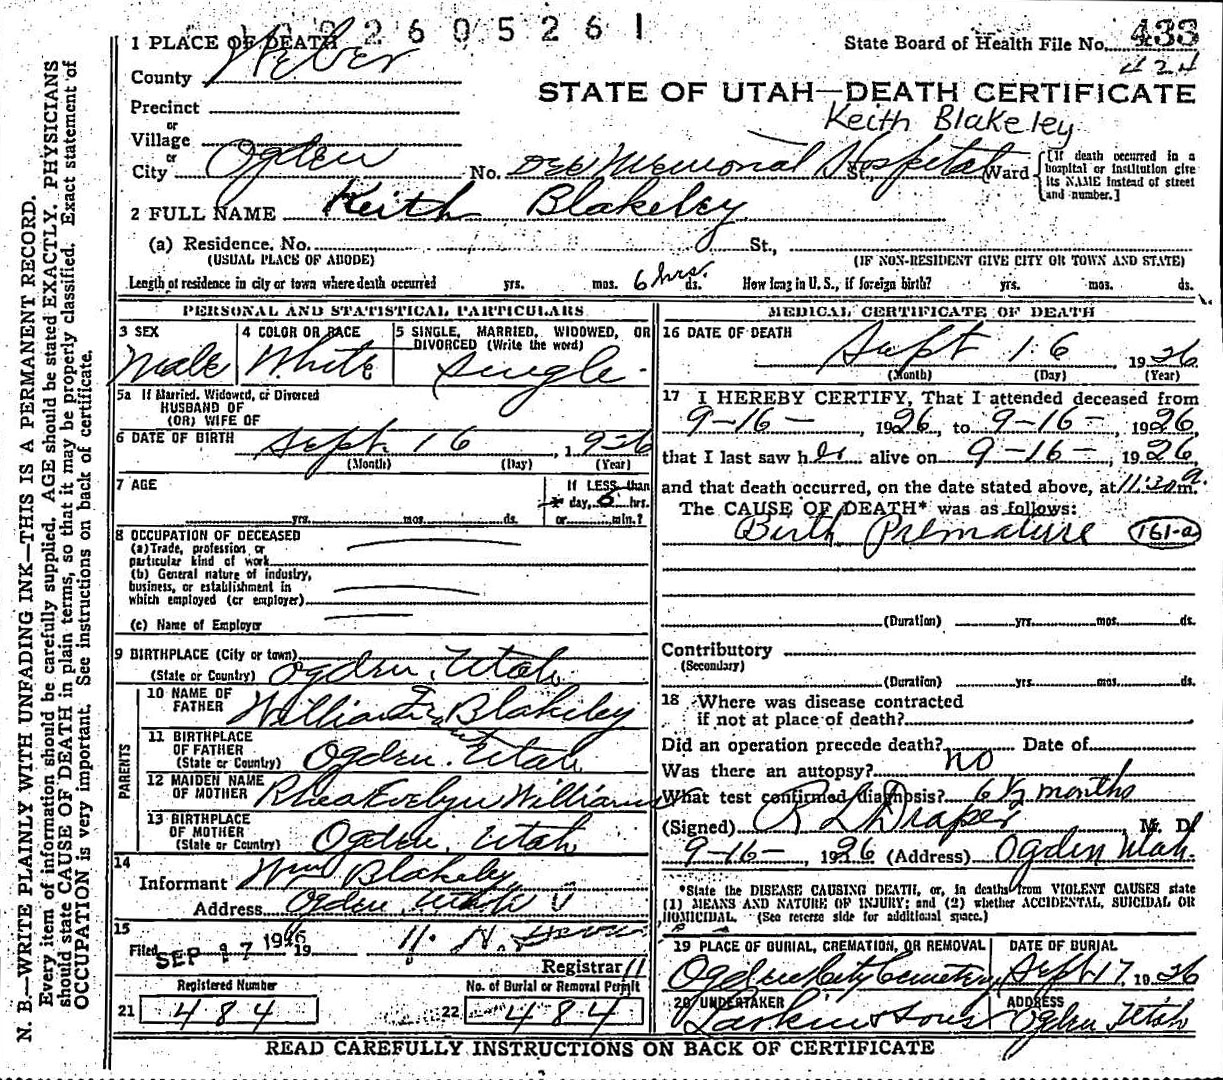 2 6 0 5 2 6 1
1 PLACE OF DEATH
State Board of Health File No. 433
424
County Weber
STATE OF UTAH—DEATH CERTIFICATE
Precinct
or
Keith Blakeley
Village
or
City Ogden No. Dee Memorial Hospital St., Ward
[If death occurred in a hospital or institution give its NAME instead of street and number.]
2 FULL NAME Keith Blakeley
(a) Residence, No. St.,
(USUAL PLACE OF ABODE) (IF NON-RESIDENT GIVE CITY OR TOWN AND STATE)
Length of residence in city or town where death occurred yrs. mos. 6 hrs. ds. How long in U. S., if foreign birth? yrs. mos. ds.
PERSONAL AND STATISTICAL PARTICULARS
3 SEX
Male
4 COLOR OR RACE
White
5 SINGLE, MARRIED, WIDOWED, OR DIVORCED (Write the word)
Single
5a If Married, Widowed, or Divorced
HUSBAND OF
(OR) WIFE OF
6 DATE OF BIRTH
Sept. 16, 1926
(Month) (Day) (Year)
7 AGE
yrs. mos. ds.
If LESS than
1 day, 6 hrs.
or min.?
8 OCCUPATION OF DECEASED
(a) Trade, profession or
particular kind of work
(b) General nature of industry,
business, or establishment in
which employed (or employer)
(c) Name of Employer
9 BIRTHPLACE (City or town)
(State or Country) Ogden, Utah
PARENTS
10 NAME OF
FATHER William Blakeley
11 BIRTHPLACE
OF FATHER
(State or Country) Ogden, Utah
12 MAIDEN NAME
OF MOTHER Rhea Evelyn Williams
13 BIRTHPLACE
OF MOTHER
(State or Country) Ogden, Utah
14
Informant Wm Blakeley
Address Ogden, Utah
15
Filed SEP 17 1926 19 H.
Registrar
Registered Number
21 484
No. of Burial or Removal Permit
22 484
MEDICAL CERTIFICATE OF DEATH
16 DATE OF DEATH
Sept 16 1926
(Month) (Day) (Year)
17 I HEREBY CERTIFY, That I attended deceased from
9-16-, 1926, to 9-16-, 1926,
that I last saw h alive on 9-16-, 1926,
and that death occurred, on the date stated above, at 11:30 a m.
The CAUSE OF DEATH* was as follows:
Birth Premature 161-a
(Duration) yrs. mos. ds.
Contributory
(Secondary)
(Duration) yrs. mos. ds.
18 Where was disease contracted
if not at place of death?
Did an operation precede death? Date of
Was there an autopsy? no
What test confirmed diagnosis? 6 1/2 months
(Signed) R L Draper M. D.
9-16-, 1926 (Address) Ogden Utah.
*State the DISEASE CAUSING DEATH, or, in deaths from VIOLENT CAUSES state
(1) MEANS AND NATURE OF INJURY; and (2) whether ACCIDENTAL, SUICIDAL OR
HOMICIDAL. (See reverse side for additional space.)
19 PLACE OF BURIAL, CREMATION, OR REMOVAL
Ogden City Cemetery
DATE OF BURIAL
Sept 17, 1926
20 UNDERTAKER
Larkin & Sons
ADDRESS
Ogden Utah
READ CAREFULLY INSTRUCTIONS ON BACK OF CERTIFICATE
N. B.—WRITE PLAINLY WITH UNFADING INK—THIS IS A PERMANENT RECORD.
Every item of information should be carefully supplied. AGE should be stated EXACTLY. PHYSICIANS
should state CAUSE OF DEATH in plain terms, so that it may be properly classified. Exact statement of
OCCUPATION is very important. See instructions on back of certificate.